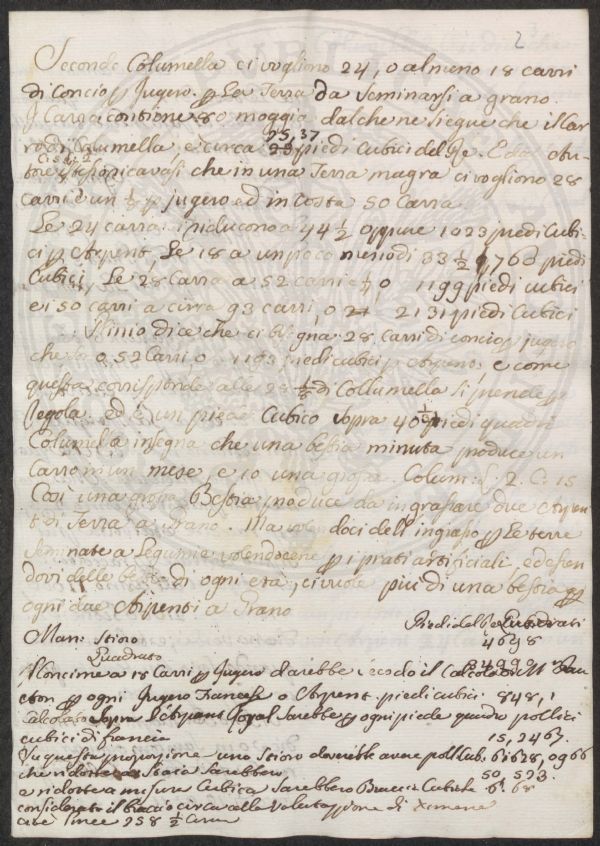 2
Secondo Columella ci vogliono 24, o almeno 18 carri
di Concio p Jugero. p Le Terra da Seminarsi a grano.
Carra contiene 80 moggia dal che ne siegue che il Car
ro di Columella, è circa 25,37 piedi Cubici del Re. E da
che in una Terra magra ci vogliono 28
carri è un p jugero ed in Costa 50 Carra
Le 24 carra si riducono a 44 1/2 oppure 1023 piedi Cubi-
ci p Arpent. Le 18 a un poco meno di 33 1/2 o 766 piedi
Cubici, Le 28 Carra a 52 carri e o 1199 piedi cubici
e i 50 carri a circa 93 carri, o 2131 piedi Cubici
Plinio dice che ci bisogna 28 Carri di concio p jugero
che o 52 Carri o piedi cubici p e come
questa corrisponde alle 28 di Collumella si prende p
Regola. ed è un piede Cubico sopra 40 piedi quadri
Columella insegna che una bestia minuta produce un
Carro in un mese e 10 una grossa. Colum: L. 2. C. 15
Così una grossa Bestia produce da ingrassare due Arpen
ti di Terra a Grano. Ma volendoci dell'ingrasso p Le terre
Seminate a Legumi e volendocene p i prati artificiali, ed essen
dovi delle bestie di ogni età, ci vuole piu di una bestia p
ogni due Arpenti a Grano
Piedi del Re Quadrati
Man: Stioro 4698
Quadrato
Il concime a 18 Carri p Jugero darebbe secodo il Calcolo di
p ogni Jugero Francese o Arpent piedi cubici 848,1
Calcolato Sopra l'Arpent Royal Sarebbe p ogni piede quadro pollici
cubici di francia 15,2467.
In questa proporzione uno Stioro dovrebbe avere poll. Cub. 61628,0966
che ridotte a Staia Sarebbero 50,523.
e ridotte a misura Cubica Sarebbero Braccia Cubiche 6. 68
considerato il braccio circa alla Valutazione di Ximenes
cioè linee 258 1/2 circa